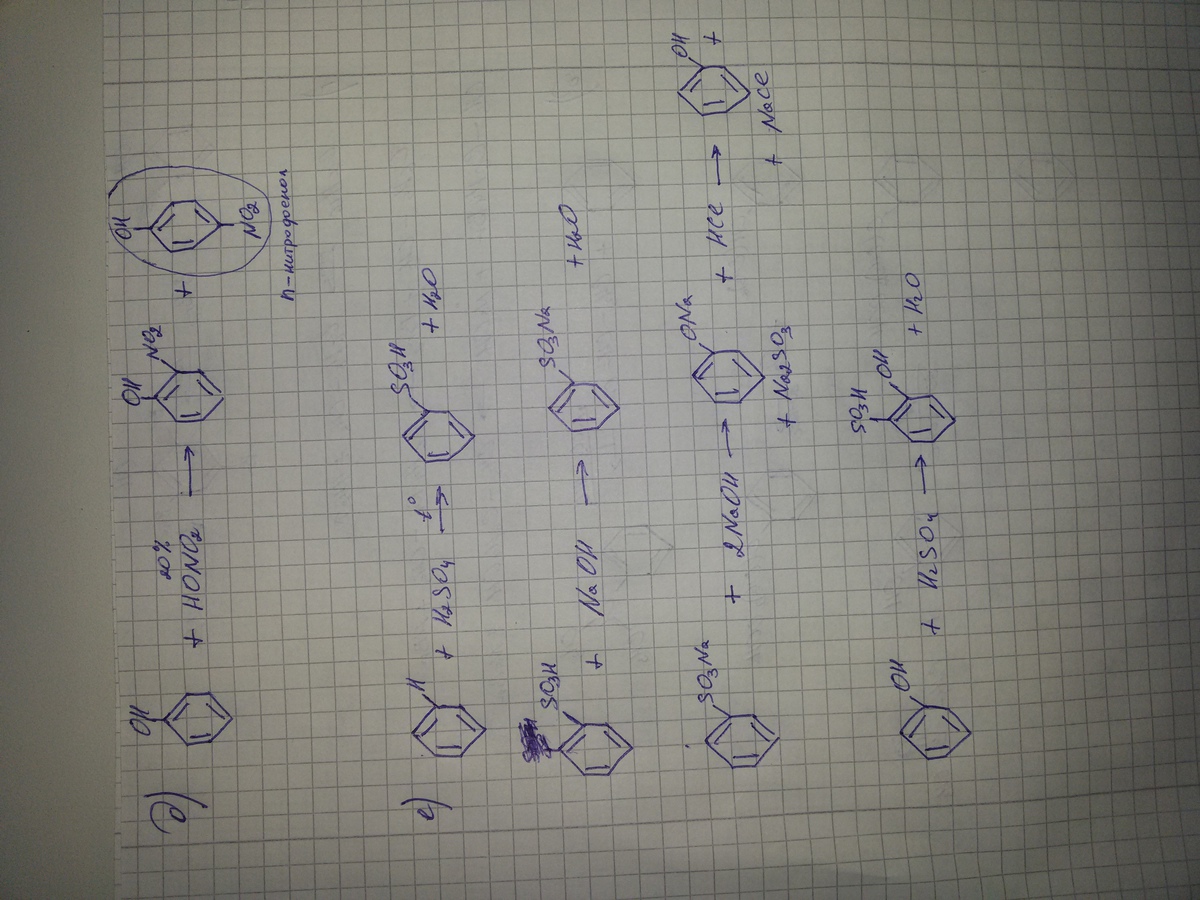 д) OH + HONO₂ 20% → OH NO₂ + OH NO₂
п-нитрофенол
е) H + H₂SO₄ t° → SO₃H + H₂O
SO₃H + NaOH → SO₃Na + H₂O
SO₃Na + 2NaOH → ONa + Na₂SO₃ + HCl → OH + + NaCl
OH + H₂SO₄ → SO₃H OH + H₂O